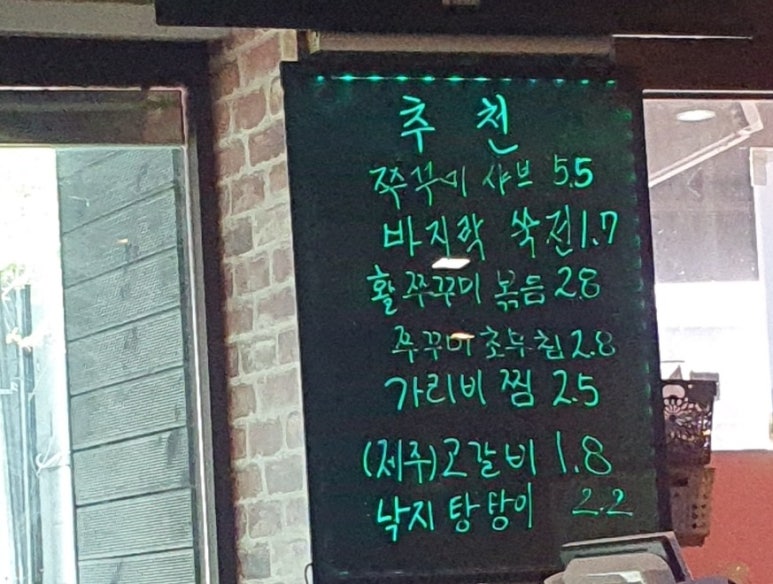 추 천
쭈꾸미 샤브 5.5
바지락 쑥전 1.7
활쭈꾸미 볶음 2.8
쭈꾸미 초무침 2.8
가리비 찜 2.5
(제주)고갈비 1.8
낙지 탕탕이 2.2